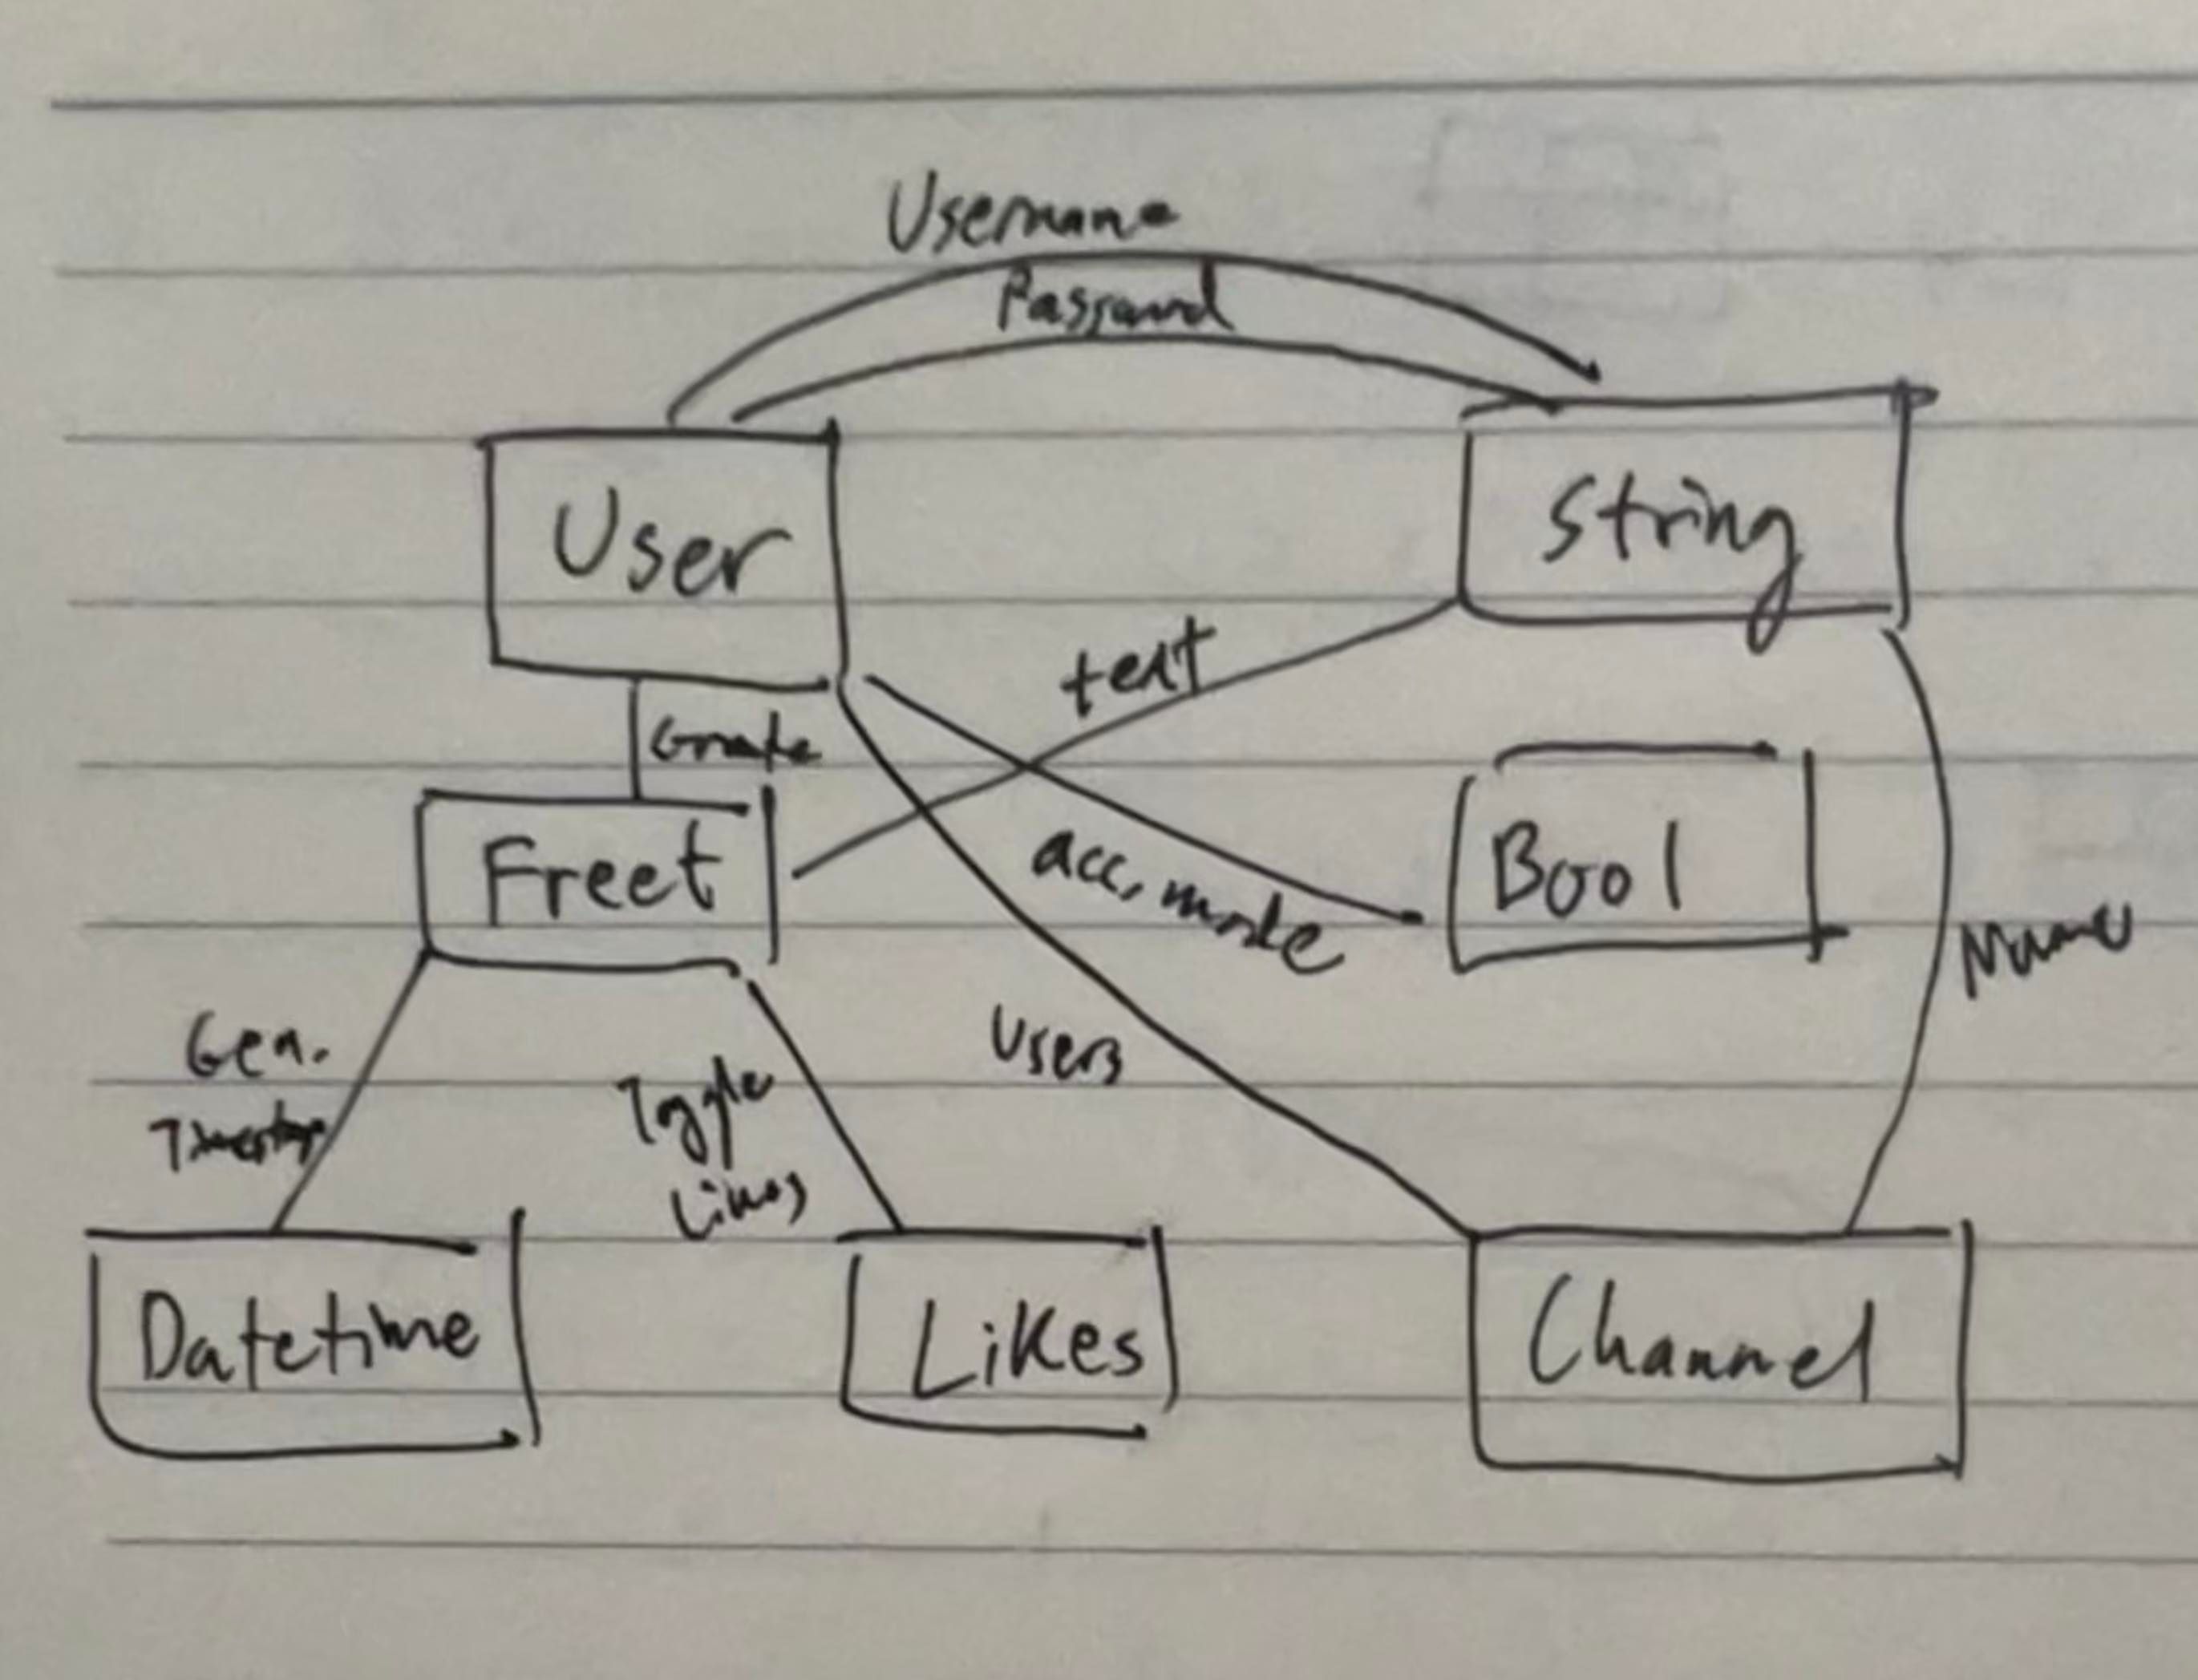 Username
Password
User
String
text
Create
Freet
acc, mode
Bool
Name
Gen.
Timestamp
Toggle
Likes
Users
Datetime
Likes
Channel